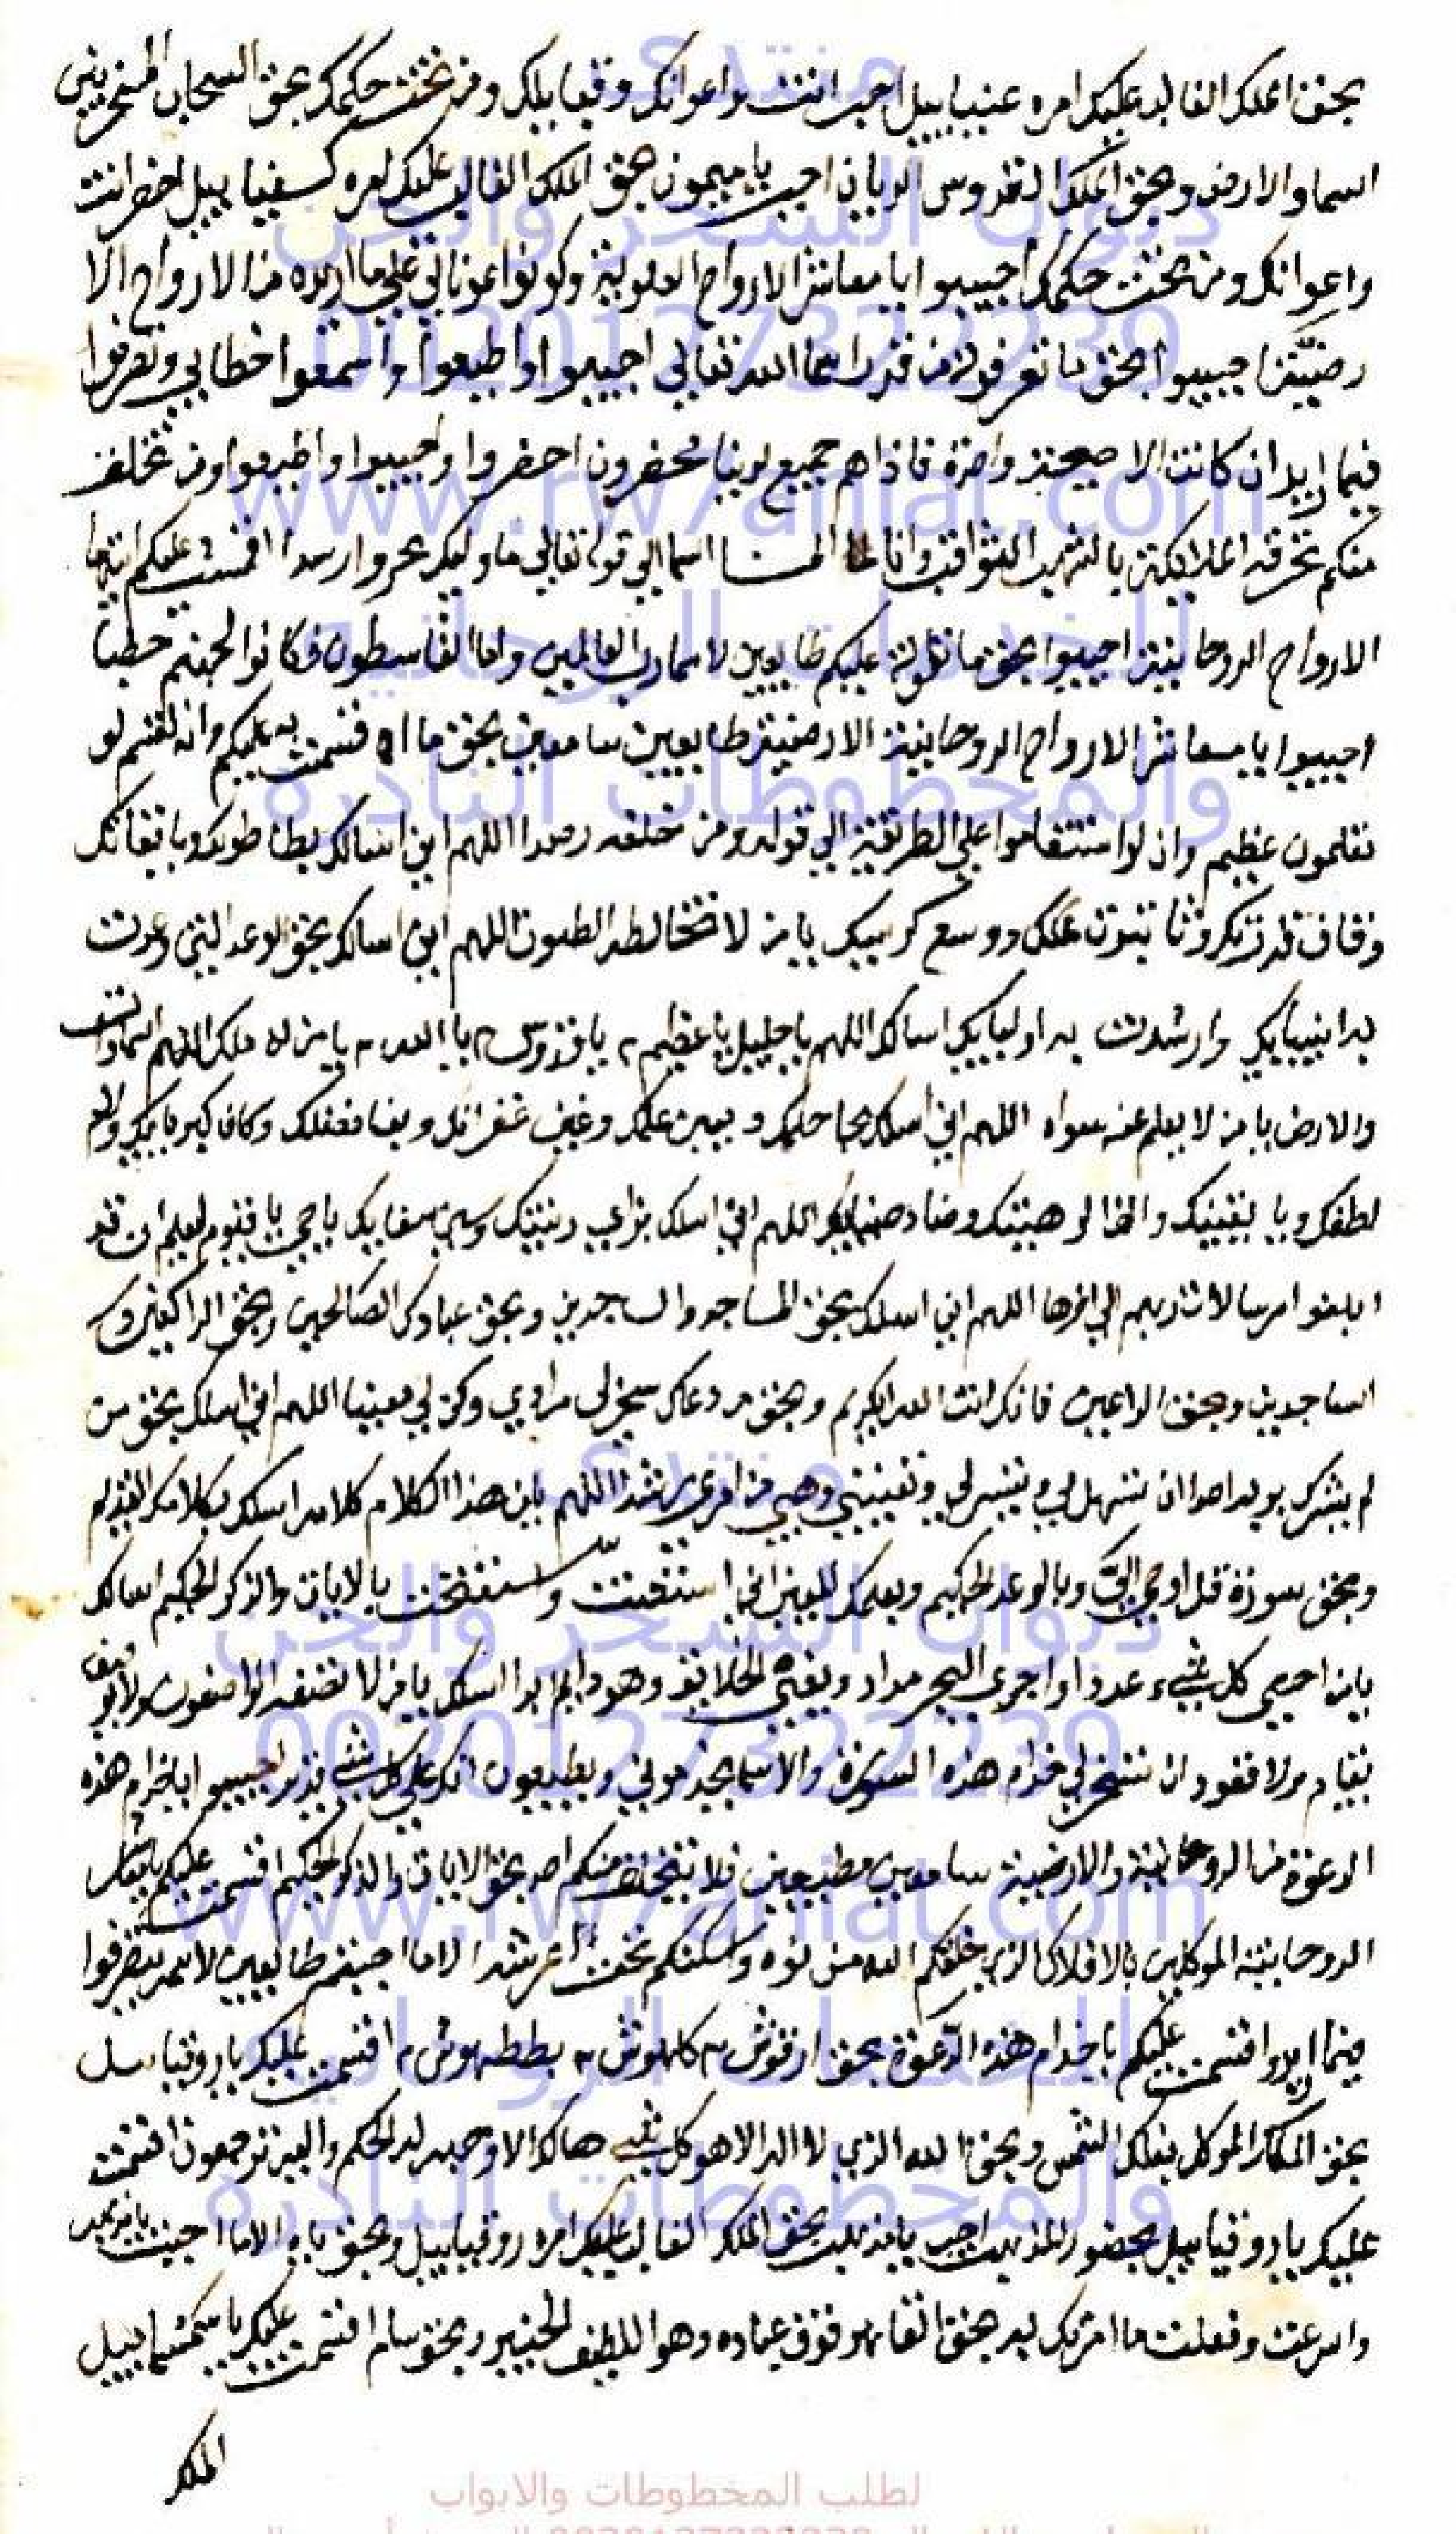 بحق الملك الغالب عليك امره عنيائيل اجب انت واعوانك وقبايلك ومن تحت حكمك بحق السحاب المسخر بين
السما والارض وبحق الملك القدوس الربان اجب يا ميمون بحق الملك الغالب عليك امره كسفيائيل احضر انت
واعوانك ومن تحت حكمك اجيبوا يا معاشر الارواح العلوية وكونوا عونا لي على ما اريده من الارواح الا
رضية اجيبوا بحق ما تعرفونه من قدر اسما الله تعالى اجيبوا واطيعوا واسمعوا خطابي وتصرفوا
فيما اريد ان كانت الا صيحة واحدة فاذا هم جميع لدينا محضرون احضروا واجيبوا واطيعوا ومن تخلف
منكم تحرقه الملائكة بالشهب الثواقب وانا لمسنا السما الي قوله تعالى فاوليك تحروا رشدا اقسمت عليكم ايتها
الارواح الروحانية اجيبوا بحق ما تلوته عليكم طايعين لاسما رب العالمين واما القاسطون فكانوا لجهنم حطبا
اجيبوا يا معاشر الارواح الروحانية الارضية طايعين سامعين بحق ما اقسمت به عليكم وانه لقسم لو
تعلمون عظيم وان لو استقاموا على الطريقة الي قوله ومن خلفه رصدا اللهم اني اسالك بطا طولك وبا بقائك
وقاف قدرتك وثا ثبوت ملكك ووسع كرسيك يا من لا تخالطه الظنون اللهم اني اسالك بحق الوعد الذي وعدت
به انبيايك وارشدت به اوليايك اسالك اللهم يا جليل يا عظيم ٢ يا قدوس ٢ يا الله ٢ يا من له ملك السموات
والارض يا من لا يعلم عنه سواه اللهم اني اسلك بحا حلمك وبعين علمك وغين غفرانك وبفا فضلك وكاف كبريائك ولام
لطفك وبا يقينك والف الوهيتك وضاد ضيائك اللهم اني اسلك يا حي يا قيوم ليعلم ان قد
ابلغوا رسالات ربهم الي اخرها اللهم اني اسلك بحق المساجد والساجدين وبحق عبادك الصالحين وبحق الراكعين و
الساجدين وبحق الداعين فانك انت الله الكريم وبحق من دعاك سخر لي مرادي وكن لي معينا اللهم اني اسلك بحق من
لم يشرك بربه احدا ان تسهل لي وتيسر لي وتعينني وهيي من امري رشدا اللهم يا من هذا الكلام كلامه اسلك بكلامك القديم
وبحق سورة قل اوحي الي وبالوعد الحكيم وبعلمك المبين اني استغثت واستفتحت بالايات والذكر الحكيم اسالك
يا من احصى كل شيء عددا واجرى البحر مداد ويفنى الخلائق وهو دايم ابدا اسلك يا من لا تصفه الواصفون ولا يوصف
بقيام ولا قعود ان تسخر لي خدام هذه السورة والاسما يخدموني ويطيعون انك على كل شي قدير اجيبوا يا خدام هذه
الدعوة من الروحانية والارضية سامعين مطيعين فلا يتخلف منكم احد بحق الايات والذكر الحكيم اقسمت عليكم يا معاشر
الروحانية الموكلين بالافلاك الذي خلقكم الله من نوره واسكنكم تحت عرشه الا ما اجبتم طايعين لاسمه تتصرفوا
فيما اريد اقسمت عليكم يا خدام هذه الدعوة بحق ارقوش ٢ كلهوش ٢ بططهوش ٢ اقسمت عليك يا روقيائيل
بحق الملك الموكل بفلك الشمس وبحق الله الذي لا اله الا هو كل شي هالك الا وجهه له الحكم واليه ترجعون اقسمت
عليك يا روقيائيل بحضور المذهب اجب يا مذهب بحق الملك الغالب عليك امره روقيائيل وبحق ياه الا ما اجبت يا مذهب
واسرعت وفعلت ما امرتك به بحق القاهر فوق عباده وهو اللطيف الخبير وبحق سام اقسمت عليك يا سمسمائيل
الملك
منتدى
ديوان السحر والجن
0020127322239
www.rw7aniat.com
للخدمات الروحانية
والمخطوطات النادرة
منتدى
ديوان السحر والجن
0020127322239
www.rw7aniat.com
للخدمات الروحانية
والمخطوطات النادرة
لطلب المخطوطات والابواب